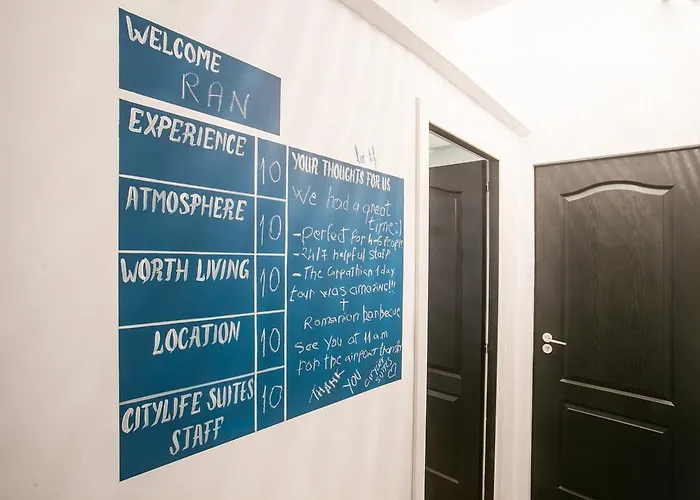 WELCOME
RAN
EXPERIENCE 10
ATMOSPHERE 10
WORTH LIVING 10
LOCATION 10
CITYLIFE SUITES
STAFF 10
YOUR THOUGHTS FOR US
We had a great
time:)
-perfect for 4-6 people
-24/7 helpful staff
-The Carpathian 1 day
tour was amazing!!!
+
Romanian barbecue
See You at 11am
for the airport transfer
THANK
YOU
CITYLIFE
SUITES